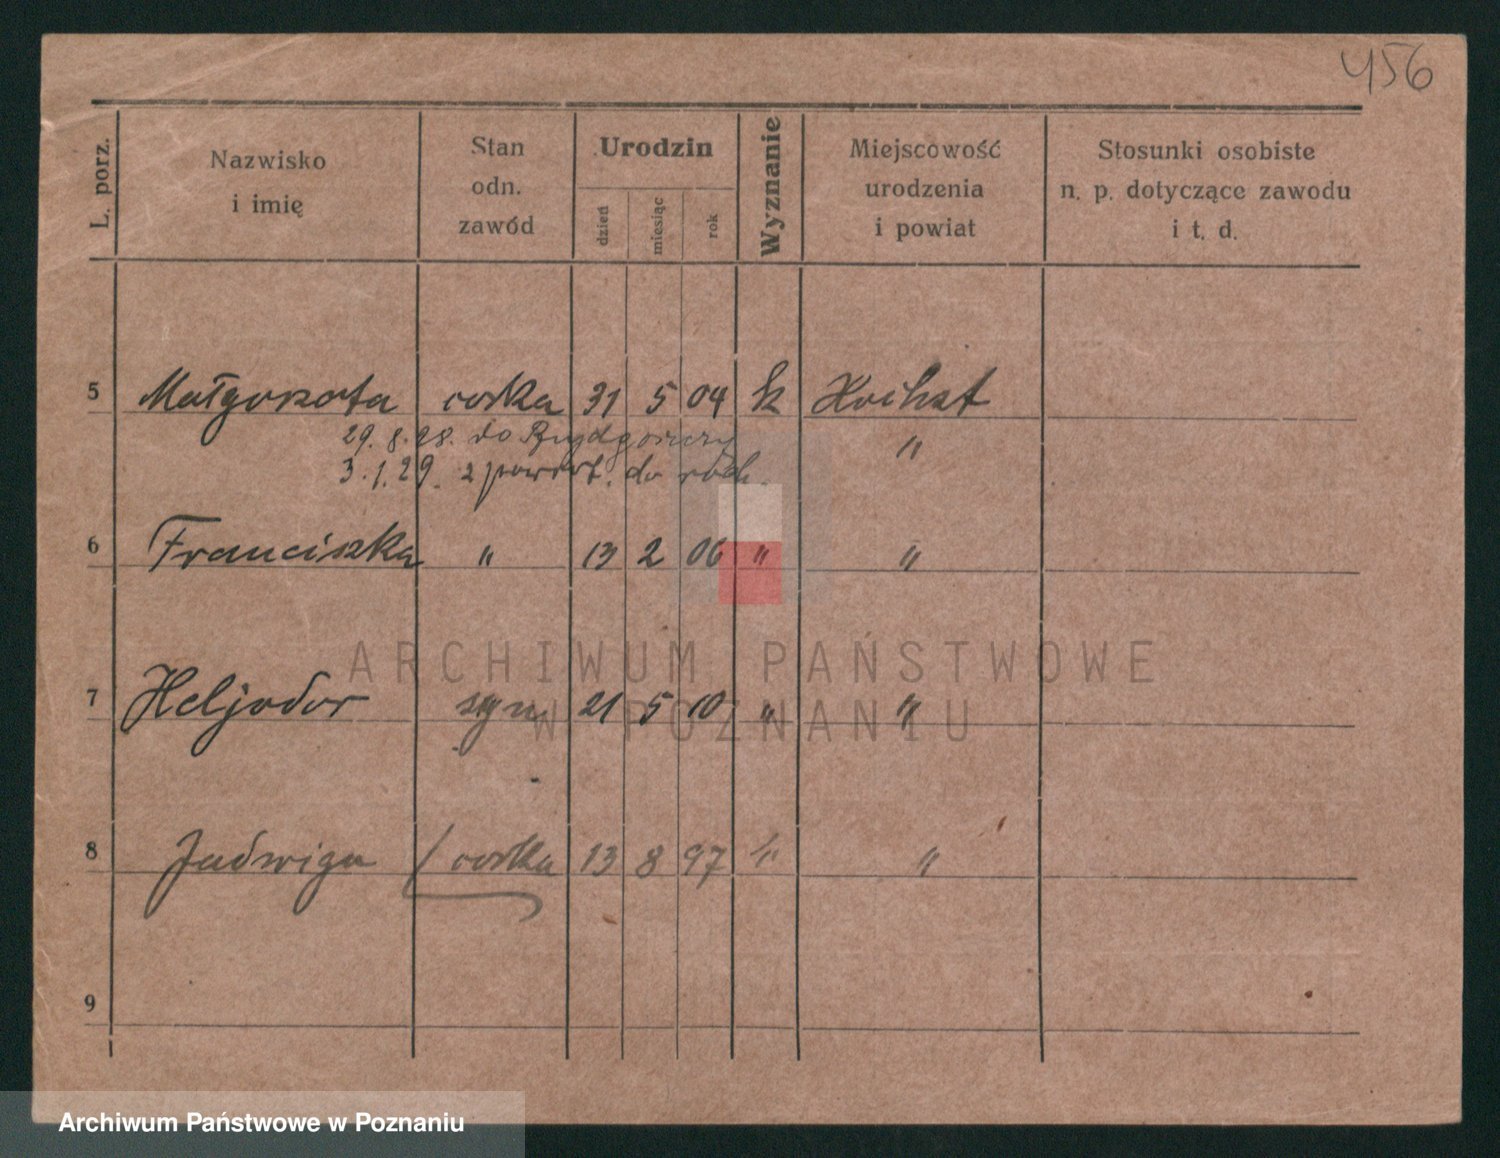 456
L. porz.
Nazwisko
i imię
Stan
odn.
zawód
Urodzin
dzień
miesiąc
rok
Wyznanie
Miejscowość
urodzenia
i powiat
Stosunki osobiste
n. p. dotyczące zawodu
i t. d.
5 Małgorzata córka 31 5 04 k
29. 8. 28. do Bydgoszczy "
3. 1. 29. z powrot. do rodz.
6 Franciszka " 13 2 06 " "
7 Heljodor syn 21 5 10 " "
8 Jadwiga córka 13 8 97 k "
9
ARCHIWUM PAŃSTWOWE
W POZNANIU
Archiwum Państwowe w Poznaniu